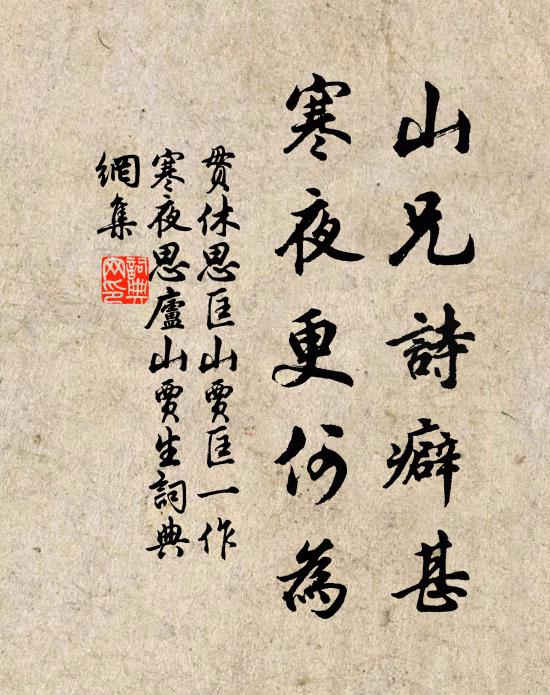 山兄詩癖甚
寒夜更何為
貫休思匡山賈匡一作
寒夜思廬山賈生詞典
網集
詞典
网印